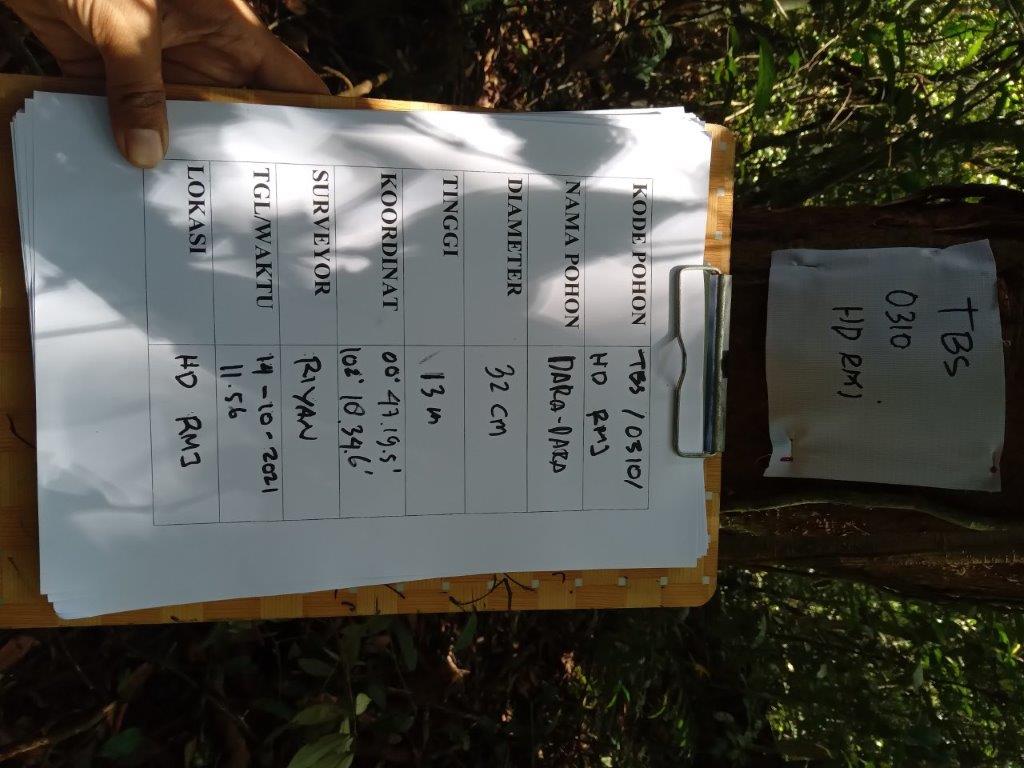 TBS
0310
HD RMJ
KODE POHON TBS / 0310/
HD RMJ
NAMA POHON DARA-DARA
DIAMETER 32 cm
TINGGI 13 m
KOORDINAT 00° 47.19.5'
102° 10.34.6'
SURVEYOR RIYAN
TGL/WAKTU 14-10-2021
11.56
LOKASI HD RMJ